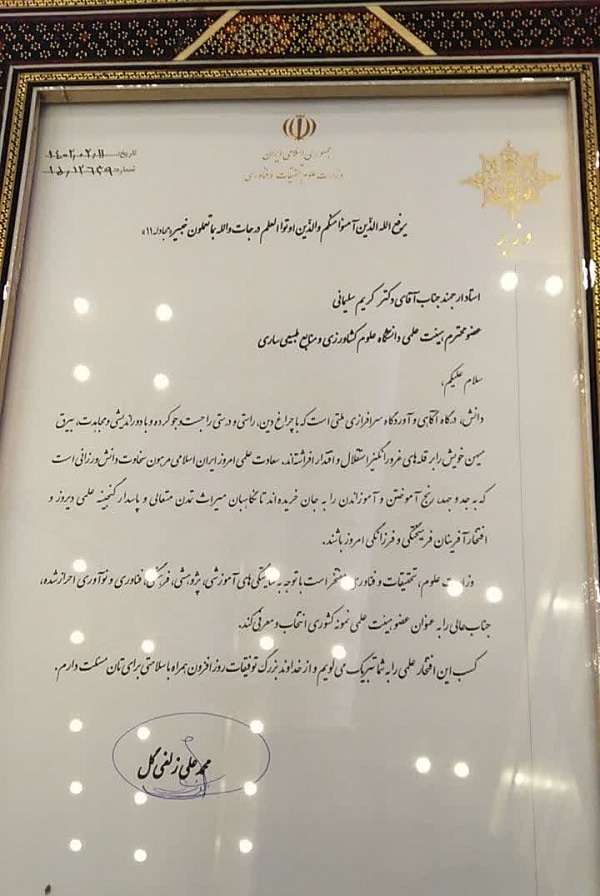 جمهوری اسلامی ایران
وزارت علوم، تحقیقات و فناوری
تاریخ: ۱۴۰۲٫۰۲٫۱۱
شماره: ۱۵٫۱۲۶۴۹
وزیر
یرفع الله الذین آمنوا منکم والذین اوتوا العلم درجات والله بما تعملون خبیر «مجادله ۱۱»
استاد ارجمند جناب آقای دکتر کریم سلیمانی
عضو محترم هیئت علمی دانشگاه علوم کشاورزی و منابع طبیعی ساری
سلام علیکم،
دانش، درگاه آگاهی و آوردگاه سرافرازی ملتی است که با چراغ دین، راستی و درستی را جست و جو کرده و با دوراندیشی و مجاهدت، بیرق
میهن خویش را بر قله‌های غرورانگیز استقلال و اقتدار افراشته‌اند. سعادت علمی امروز ایران اسلامی مرهون سخاوت دانش‌ورزانی است
که به جد و جهد، رنج آموختن و آموزاندن را به جان خریده‌اند تا نگاهبان میراث تمدن متعالی و پاسدار گنجینه علمی دیروز و
افتخارآفرینان فرهیختگی و فرزانگی امروز باشند.
وزارت علوم، تحقیقات و فناوری مفتخر است با توجه به شایستگی‌های آموزشی، پژوهشی، فرهنگی، فناوری و نوآوری احراز شده،
جناب عالی را به عنوان عضو هیئت علمی نمونه کشوری انتخاب و معرفی کند.
کسب این افتخار علمی را به شما تبریک می‌گویم و از خداوند بزرگ توفیقات روزافزون همراه با سلامتی برای‌تان مسئلت دارم.
محمدعلی زلفی گل